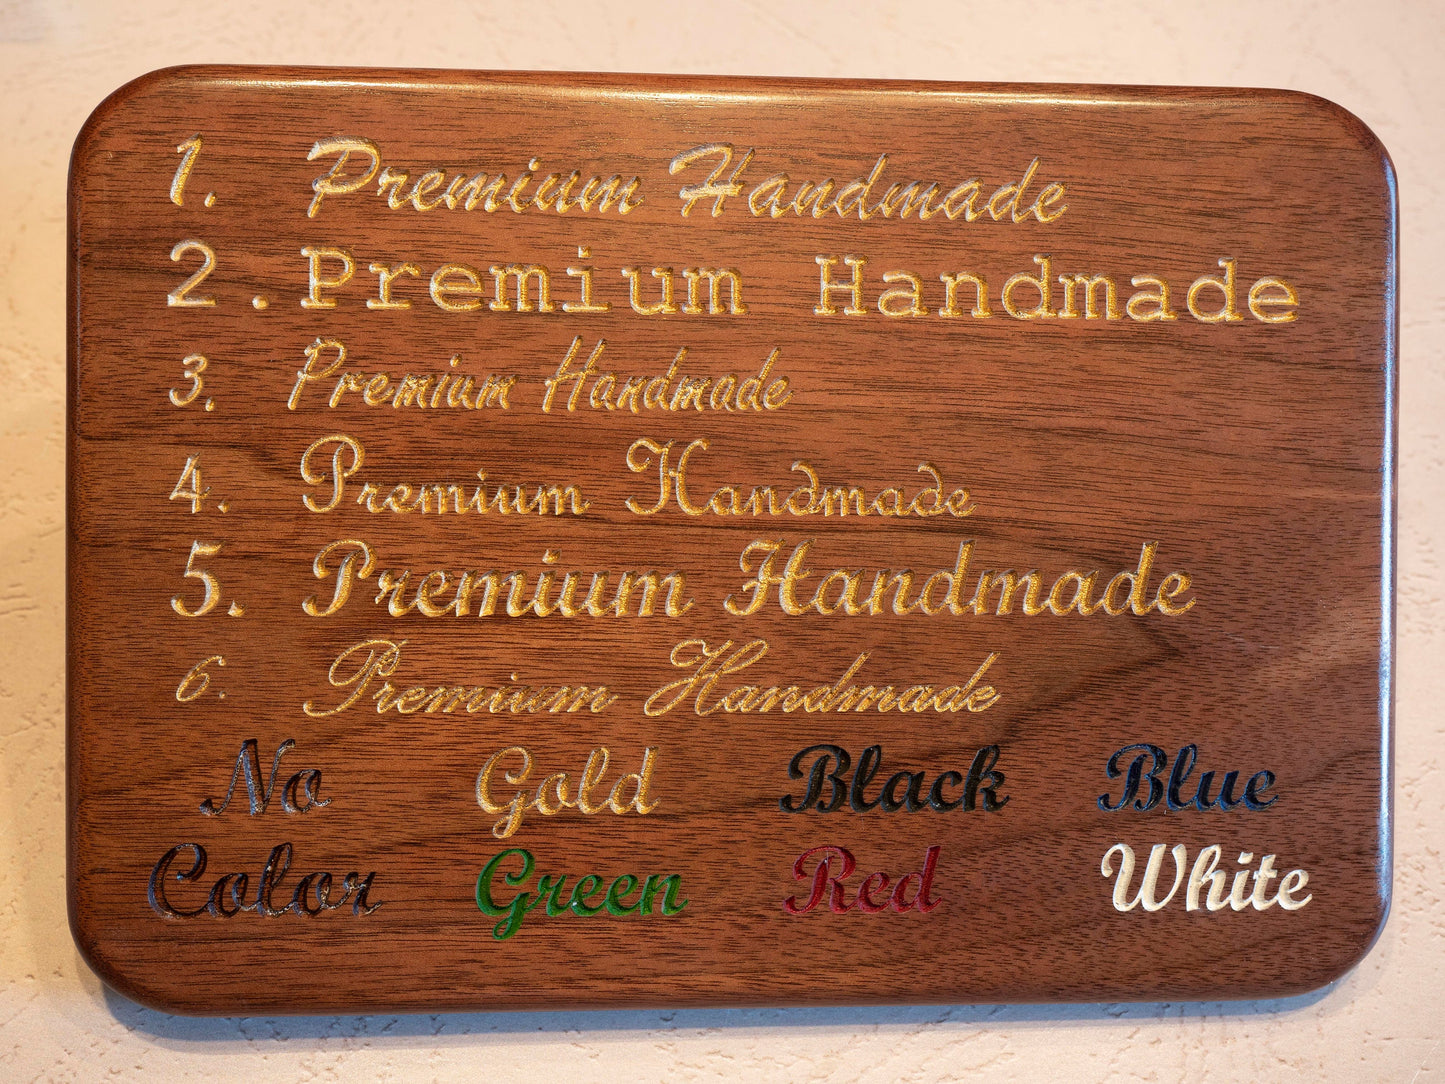 1. Premium Handmade
2. Premium Handmade
3. Premium Handmade
4. Premium Handmade
5. Premium Handmade
6. Premium Handmade
No Gold Black Blue
Color Green Red White